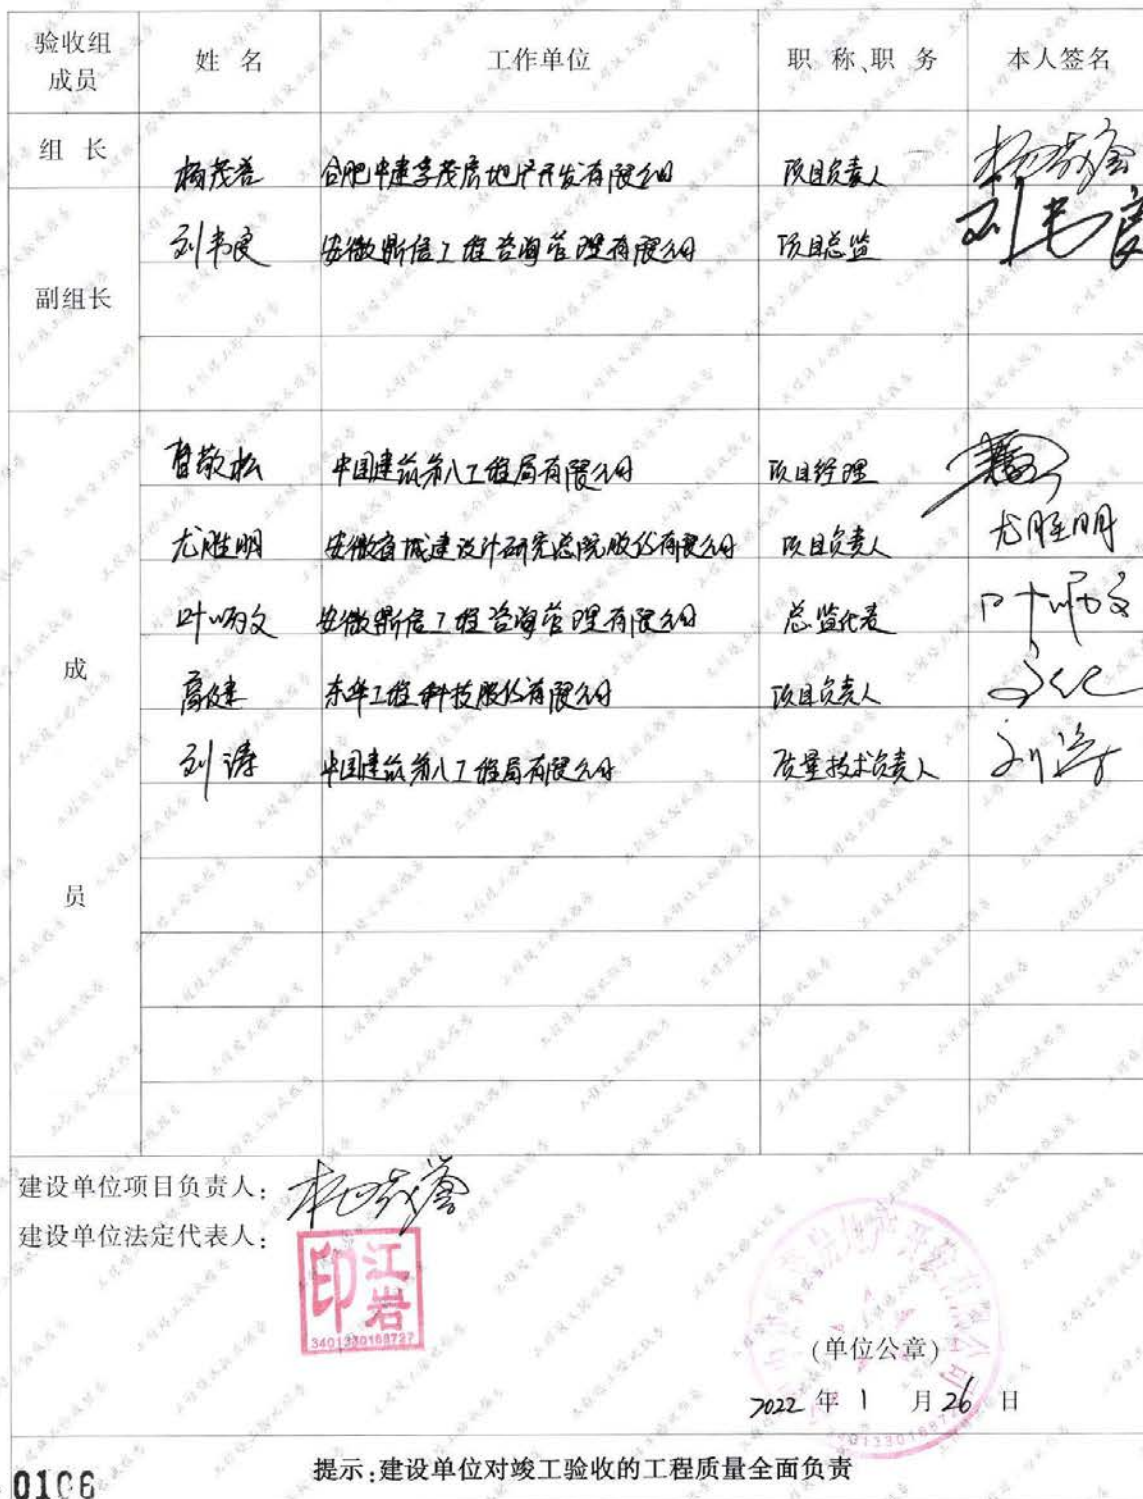 验收组成员 姓 名 工作单位 职 称、职 务 本人签名
组 长 杨茂誉 合肥中建孚茂房地产开发有限公司 项目负责人
副组长 刘书良 安徽鼎信工程咨询管理有限公司 项目总监 刘书良
成员
曹敬松 中国建筑第八工程局有限公司 项目经理
尤胜明 安徽省城建设计研究总院股份有限公司 项目负责人 尤胜明
叶炳文 安徽鼎信工程咨询管理有限公司 总监代表 叶炳文
高健 东华工程科技股份有限公司 项目负责人
刘涛 中国建筑第八工程局有限公司 质量技术负责人 刘涛
建设单位项目负责人:
建设单位法定代表人:
江岩印
3401330168727
(单位公章)
2022 年 1 月 26 日
0106 提示:建设单位对竣工验收的工程质量全面负责